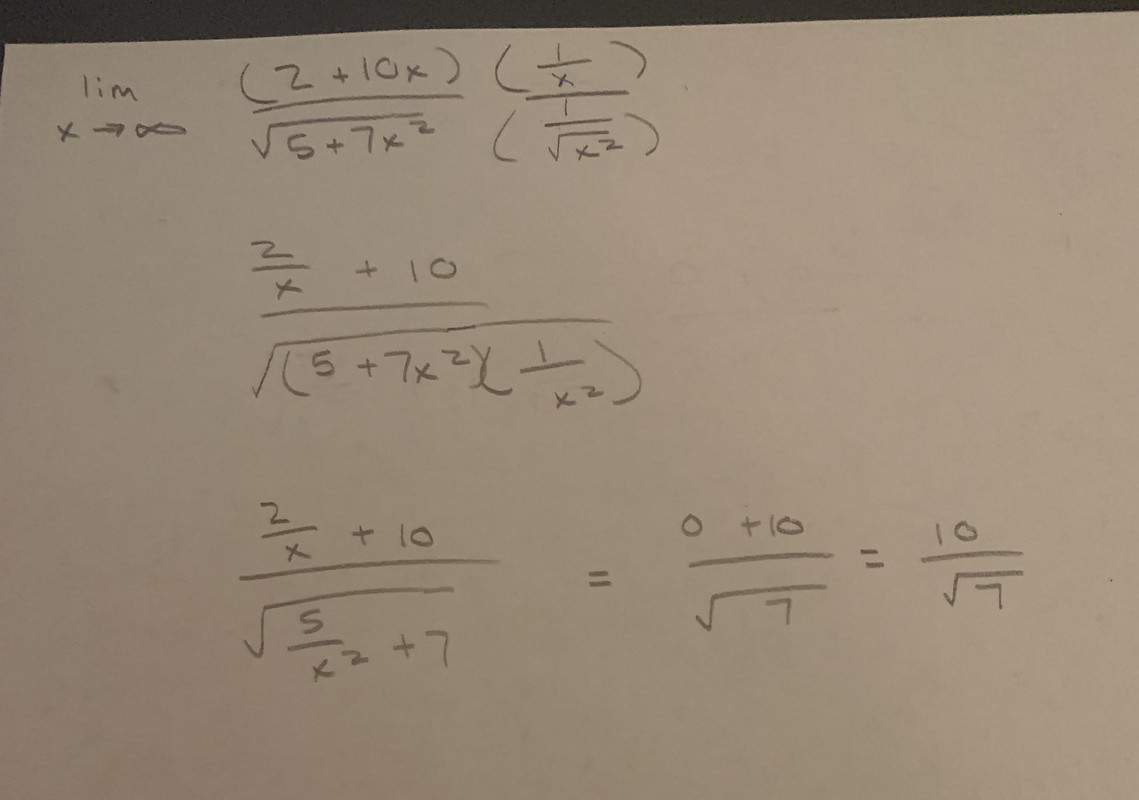 lim x→∞ (2 + 10x) / √(5 + 7x²) · (1/x) / (1/√(x²))
(2/x + 10) / √((5 + 7x²)(1/x²))
(2/x + 10) / √(5/x² + 7) = (0 + 10) / √7 = 10/√7